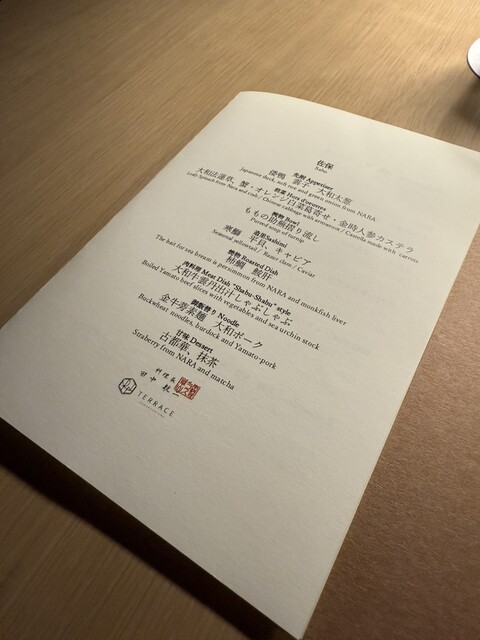 佐保
Saho
先附 Appetizer
倭鴨 雲子 大和太葱
Japanese duck, soft roe and green onion from NARA
前菜 Hors d'oeuvres
大和法蓮草、蟹・オレンジ白菜葛寄せ・金時人参カステラ
Leafy Spinach from Nara and crab / Chinese cabbage with arrowroot / Castella made with carrots
椀物 Bowl
ももの助蕪摺り流し
Pureed soup of turnip
造里 Sashimi
寒鰤 平貝、キャビア
Seasonal yellowtail / Razor clam / Caviar
焼物 Roasted Dish
柿鯛 鮟肝
The bait for sea bream is persimmon from NARA and monkfish liver
肉料理 Meat Dish "Shabu-Shabu" style
大和牛雲丹出汁しゃぶしゃぶ
Boiled Yamato beef slices with vegetables and sea urchin stock
御飯替り Noodle
金牛蒡素麺 大和ポーク
Buckwheat noodles, burdock and Yamato-pork
甘味 Dessert
古都華、抹茶
Straberry from NARA and matcha
料理長
田中
TERRACE